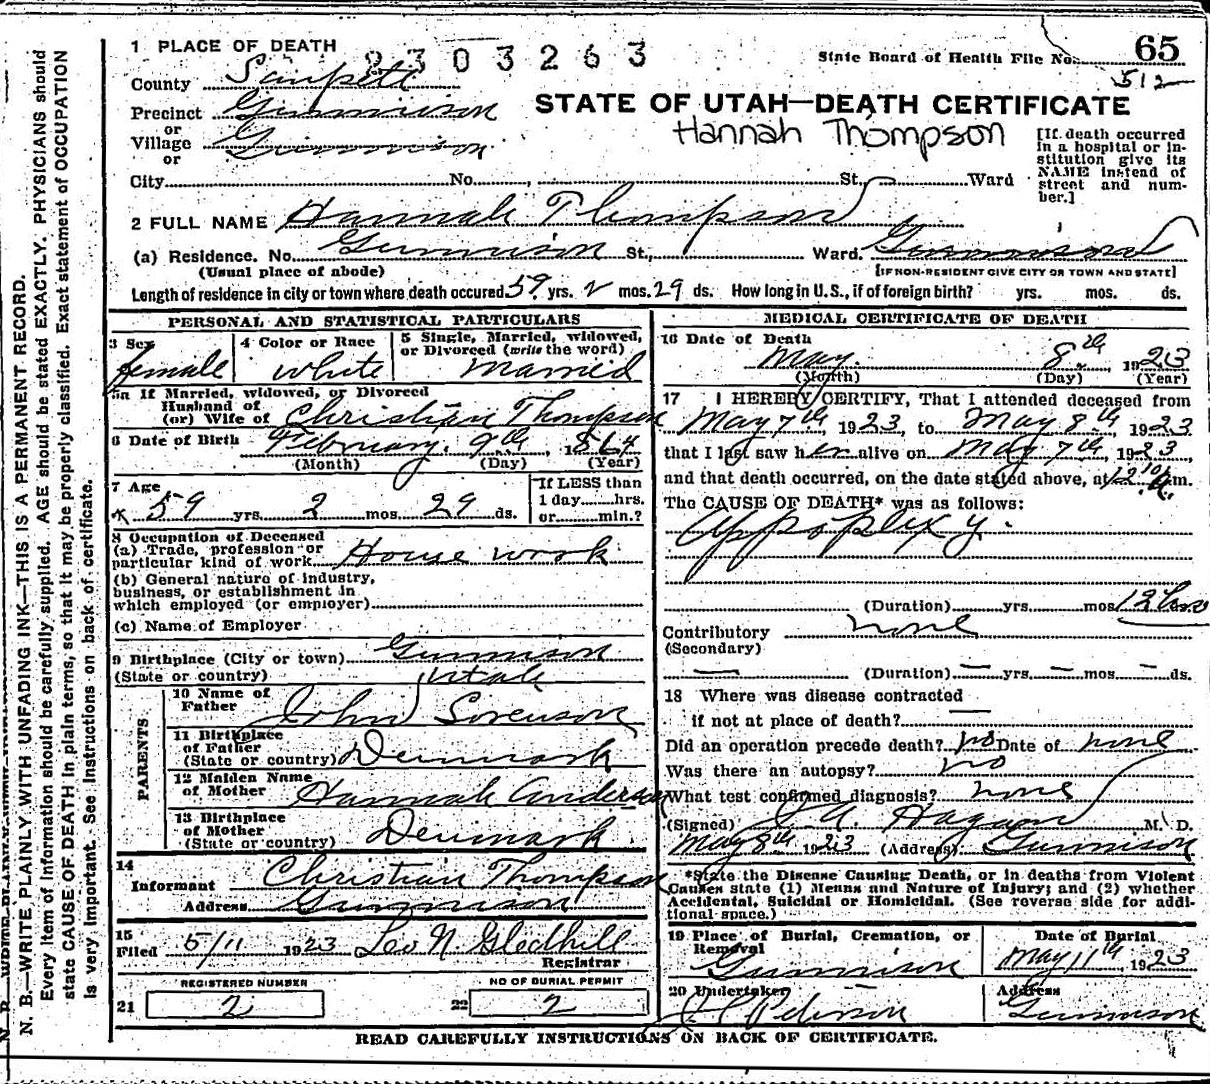 1 PLACE OF DEATH 2303263 State Board of Health File No. 65
512
County Sanpete
Precinct Gunnison STATE OF UTAH—DEATH CERTIFICATE
or
Village Gunnison Hannah Thompson
or
City No. , St., Ward
[If death occurred
in a hospital or in-
stitution give its
NAME instead of
street and num-
ber.]
2 FULL NAME Hannah Thompson
(a) Residence. No. Gunnison St., Ward. Gunnison
(Usual place of abode) [IF NON-RESIDENT GIVE CITY OR TOWN AND STATE]
Length of residence in city or town where death occured 59 yrs. 2 mos. 29 ds. How long in U.S., if of foreign birth? yrs. mos. ds.
PERSONAL AND STATISTICAL PARTICULARS
3 Sex female
4 Color or Race white
5 Single, Married, widowed,
or Divorced (write the word)
Married
5a If Married, widowed, or Divorced
Husband of
(or) Wife of Christian Thompson
6 Date of Birth February. 9th, 1864
(Month) (Day) (Year)
7 Age
59 yrs. 2 mos. 29 ds.
If LESS than
1 day hrs.
or min.?
8 Occupation of Deceased
(a) Trade, profession or
particular kind of work House work
(b) General nature of industry,
business, or establishment in
which employed (or employer)
(c) Name of Employer
9 Birthplace (City or town) Gunnison
(State or country) Utah
PARENTS
10 Name of
Father John Sorenson
11 Birthplace
of Father
(State or country) Denmark
12 Maiden Name
of Mother Hannah Anderson
13 Birthplace
of Mother
(State or country) Denmark
14
Informant Christian Thompson
Address Gunnison
15
Filed 5/11 1923 Leo N. Gledhill
Registrar
REGISTERED NUMBER
21 2
NO OF BURIAL PERMIT
22 2
MEDICAL CERTIFICATE OF DEATH
16 Date of Death
May. 8th, 1923
(Month) (Day) (Year)
17 I HEREBY CERTIFY, That I attended deceased from
May 7th, 1923, to May 8th, 1923
that I last saw her alive on May 7th, 1923,
and that death occurred, on the date stated above, at 12 10 a.m.
The CAUSE OF DEATH* was as follows:
Appoplexy.
(Duration) yrs. mos. 12 hrs
Contributory none
(Secondary)
— (Duration) — yrs. — mos. — ds.
18 Where was disease contracted
if not at place of death? —
Did an operation precede death? no Date of none
Was there an autopsy? no
What test confirmed diagnosis? none
(Signed) Hagan M. D.
May 8th 1923 (Address) Gunnison
*State the Disease Causing Death, or in deaths from Violent
Causes state (1) Means and Nature of Injury; and (2) whether
Accidental, Suicidal or Homicidal. (See reverse side for addi-
tional space.)
19 Place of Burial, Cremation, or
Removal
Gunnison
Date of Burial
May 11th 1923
20 Undertaker
Peterson
Address
Gunnison
READ CAREFULLY INSTRUCTIONS ON BACK OF CERTIFICATE.
N. B.—WRITE PLAINLY WITH UNFADING INK—THIS IS A PERMANENT RECORD.
Every item of information should be carefully supplied. AGE should be stated EXACTLY. PHYSICIANS should
state CAUSE OF DEATH in plain terms, so that it may be properly classified. Exact statement of OCCUPATION
is very important. See instructions on back of certificate.